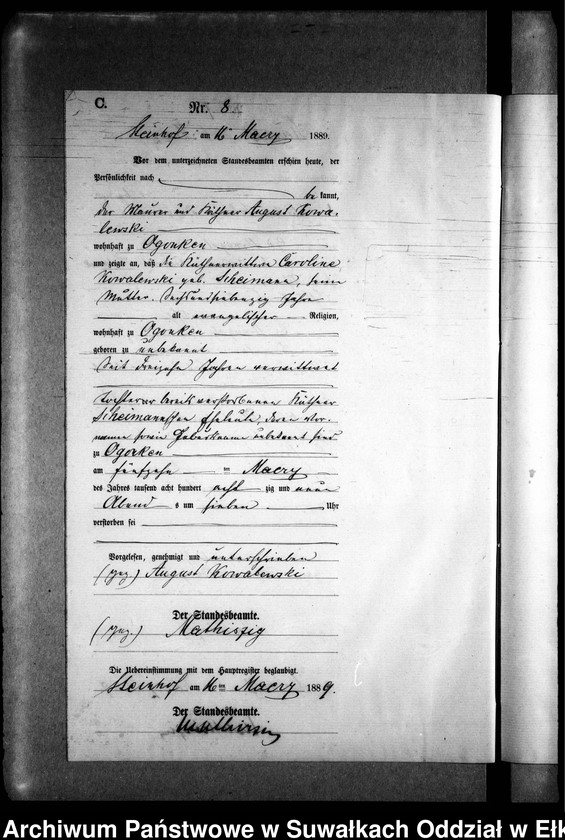 C.
Nr. 8
Steinhof am 16ten Maerz 1889.
Vor dem unterzeichneten Standesbeamten erschien heute, der
Persönlichkeit nach
be kannt,
der Maurer und Käthner August Kowa-
lewski
wohnhaft zu Ogonken
und zeigte an, daß die Käthnerwittwe Caroline
Kowalewski geb. Scheimann, seine
Mutter, Sechsundsiebenzig Jahre
alt evangelischer Religion,
wohnhaft zu Ogonken
geboren zu unbekannt
seit dreizehn Jahren verwittwet
Tochter der bereits verstorbenen Käthner
Scheimannschen Eheleute, deren Vor-
namen sowie Geburtsname unbekannt sind
zu Ogonken
am fünfzehn ten Maerz
des Jahres tausend acht hundert acht zig und neun
Abend s um sieben Uhr
verstorben sei
Vorgelesen, genehmigt und unterschrieben
(gez.) August Kowalewski
Der Standesbeamte.
(gez.) Mathiszig
Die Uebereinstimmung mit dem Hauptregister beglaubigt.
Steinhof am 16ten Maerz 1889.
Der Standesbeamte.
Mathiszig
Archiwum Państwowe w Suwałkach Oddział w Ełk